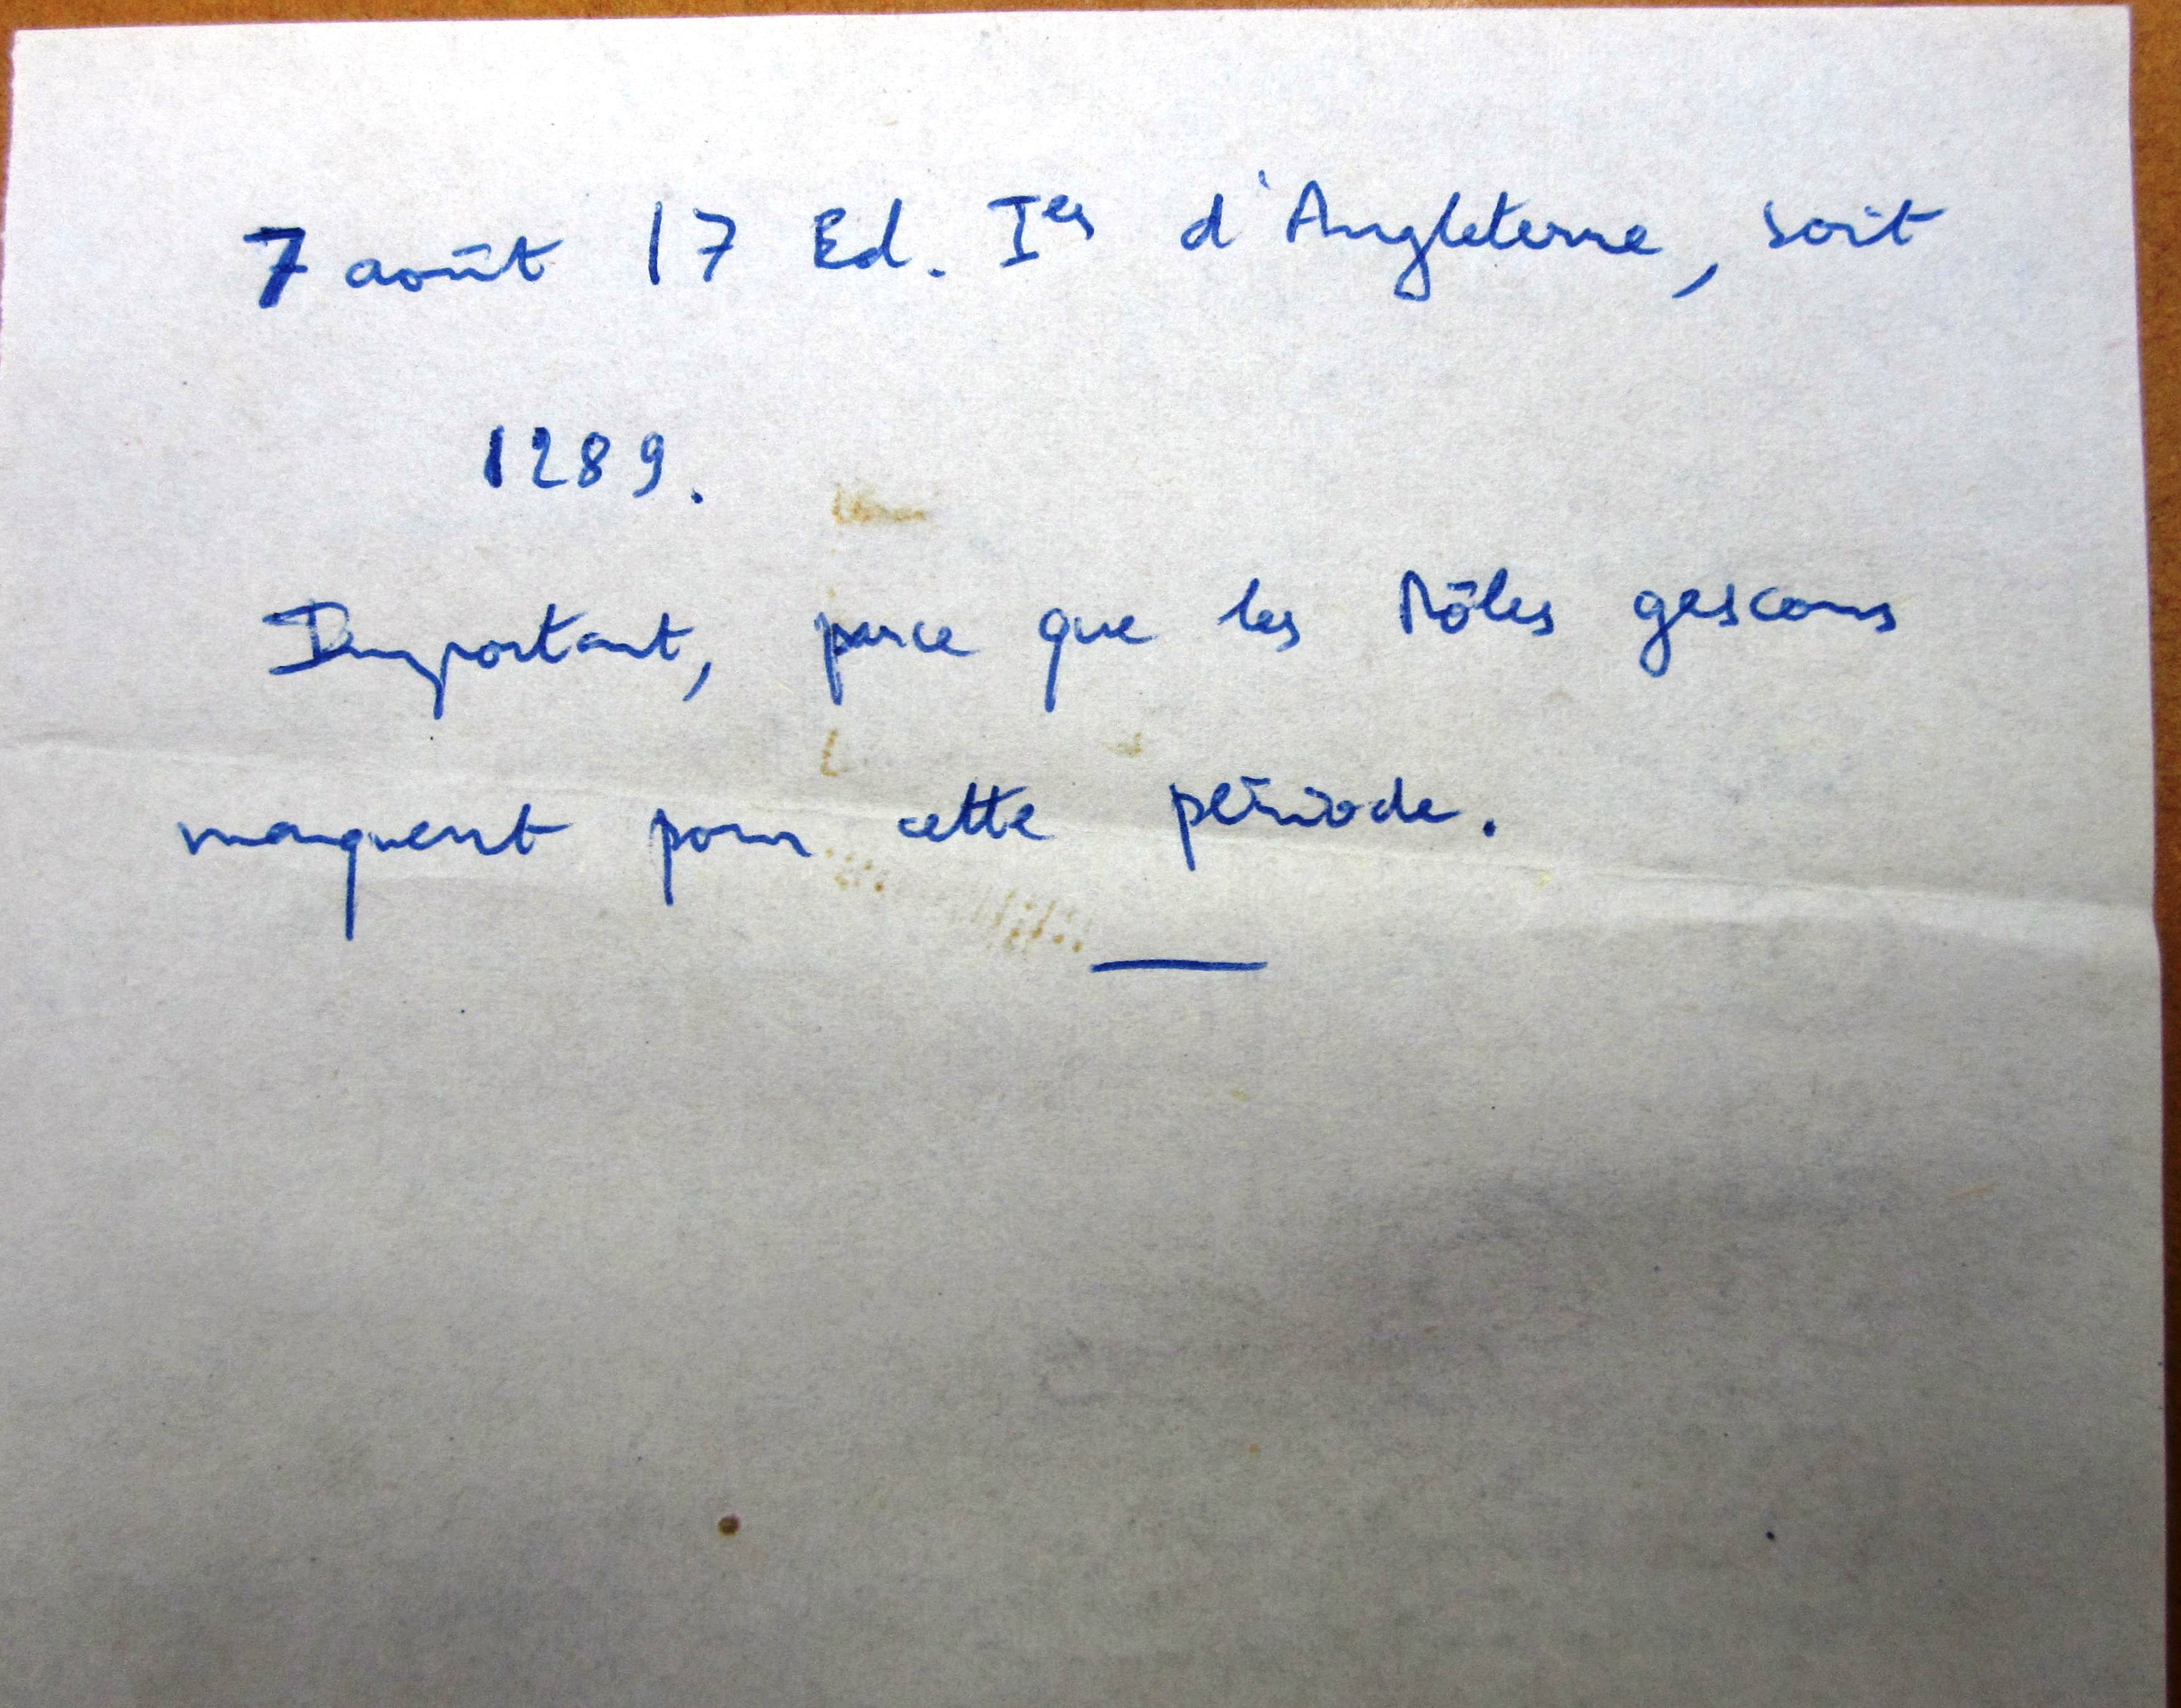 7 août 17 Ed. Ier d'Angleterre, soit
1289.
Important, parce que les Rôles gascons
manquent pour cette période.